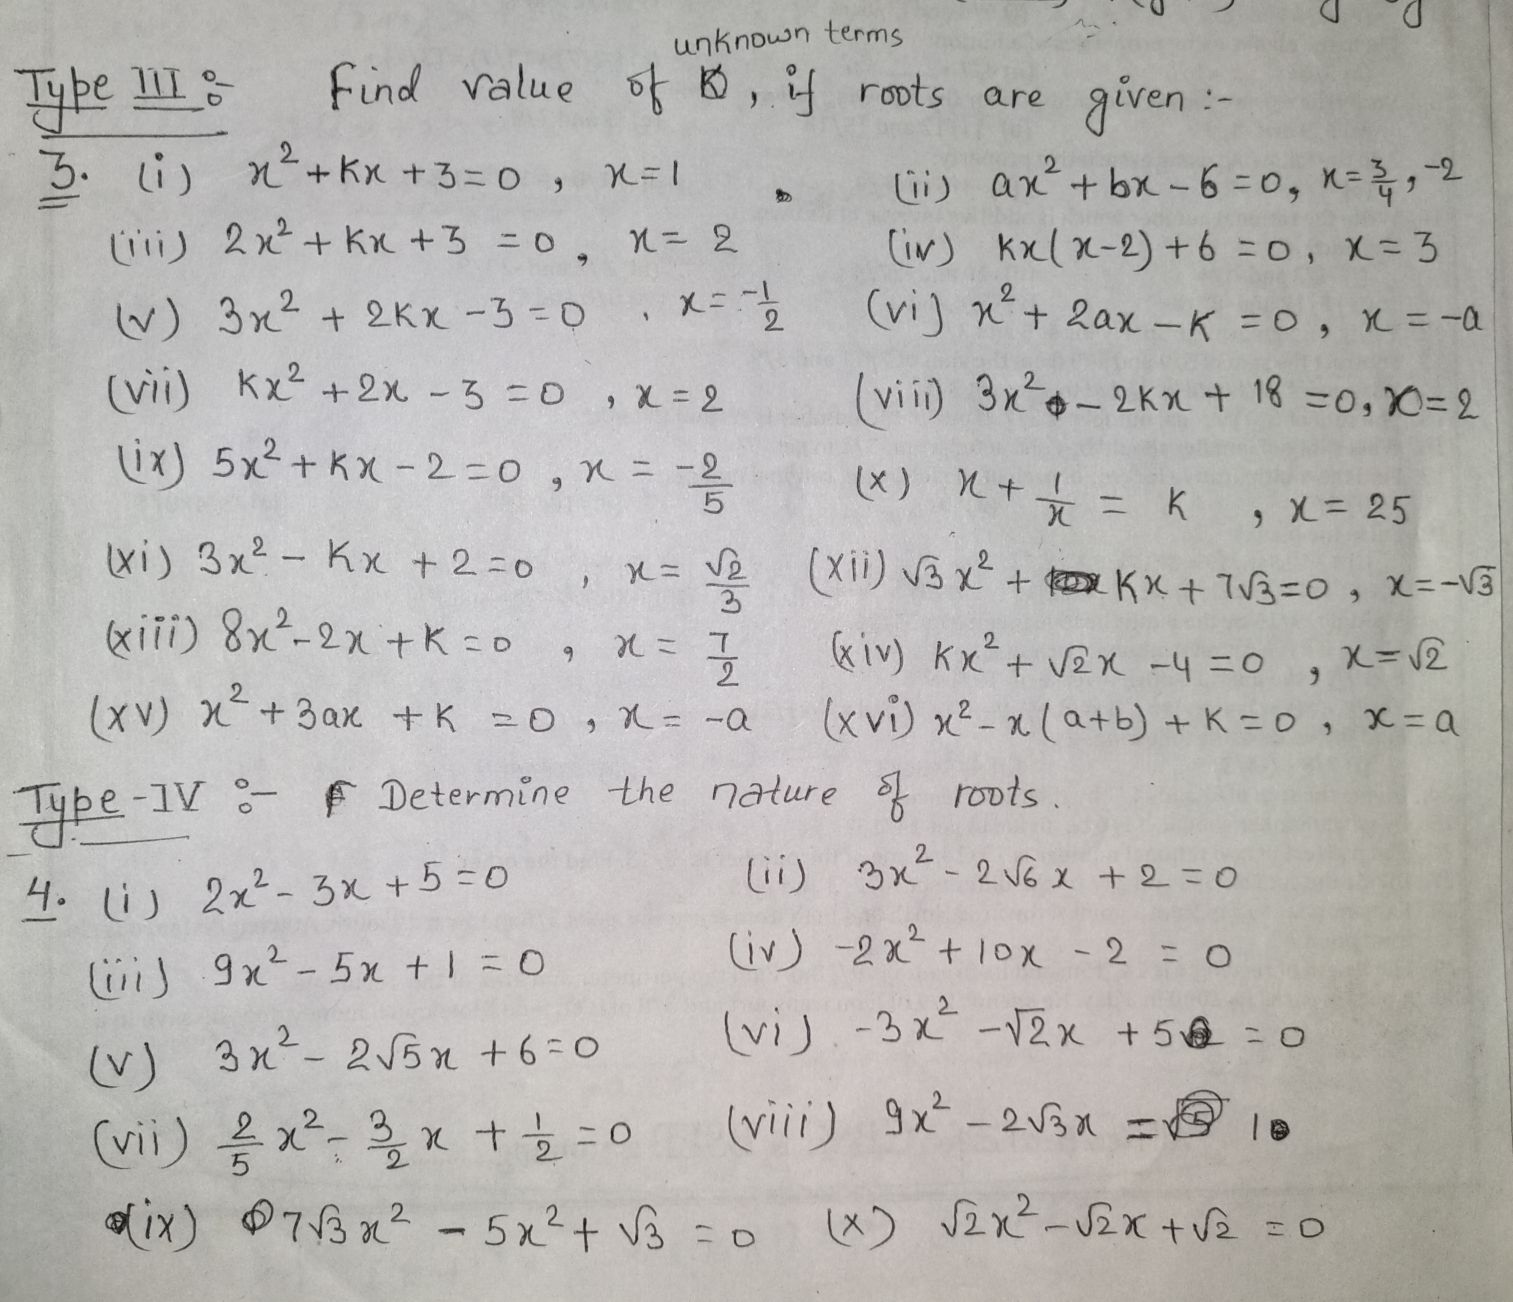 unknown terms
Type III :- Find value of K, if roots are given :-
3. (i) x² + Kx + 3 = 0 , x = 1 (ii) ax² + bx - 6 = 0, x = 3/4, -2
(iii) 2x² + Kx + 3 = 0 , x = 2 (iv) Kx(x-2) + 6 = 0, x = 3
(v) 3x² + 2Kx - 3 = 0 , x = -1/2 (vi) x² + 2ax - K = 0, x = -a
(vii) Kx² + 2x - 3 = 0 , x = 2 (viii) 3x² - 2Kx + 18 = 0, x = 2
(ix) 5x² + Kx - 2 = 0 , x = -2/5 (x) x + 1/x = K , x = 25
(xi) 3x² - Kx + 2 = 0 , x = √2/3 (xii) √3x² + Kx + 7√3 = 0 , x = -√3
(xiii) 8x² - 2x + K = 0 , x = 7/2 (xiv) Kx² + √2x - 4 = 0 , x = √2
(xv) x² + 3ax + K = 0 , x = -a (xvi) x² - x(a+b) + K = 0 , x = a
Type-IV :- Determine the nature of roots.
4. (i) 2x² - 3x + 5 = 0 (ii) 3x² - 2√6x + 2 = 0
(iii) 9x² - 5x + 1 = 0 (iv) -2x² + 10x - 2 = 0
(v) 3x² - 2√5x + 6 = 0 (vi) -3x² - √2x + 5 = 0
(vii) 2/5x² - 3/2x + 1/2 = 0 (viii) 9x² - 2√3x = 1
(ix) 7√3x² - 5x² + √3 = 0 (x) √2x² - √2x + √2 = 0